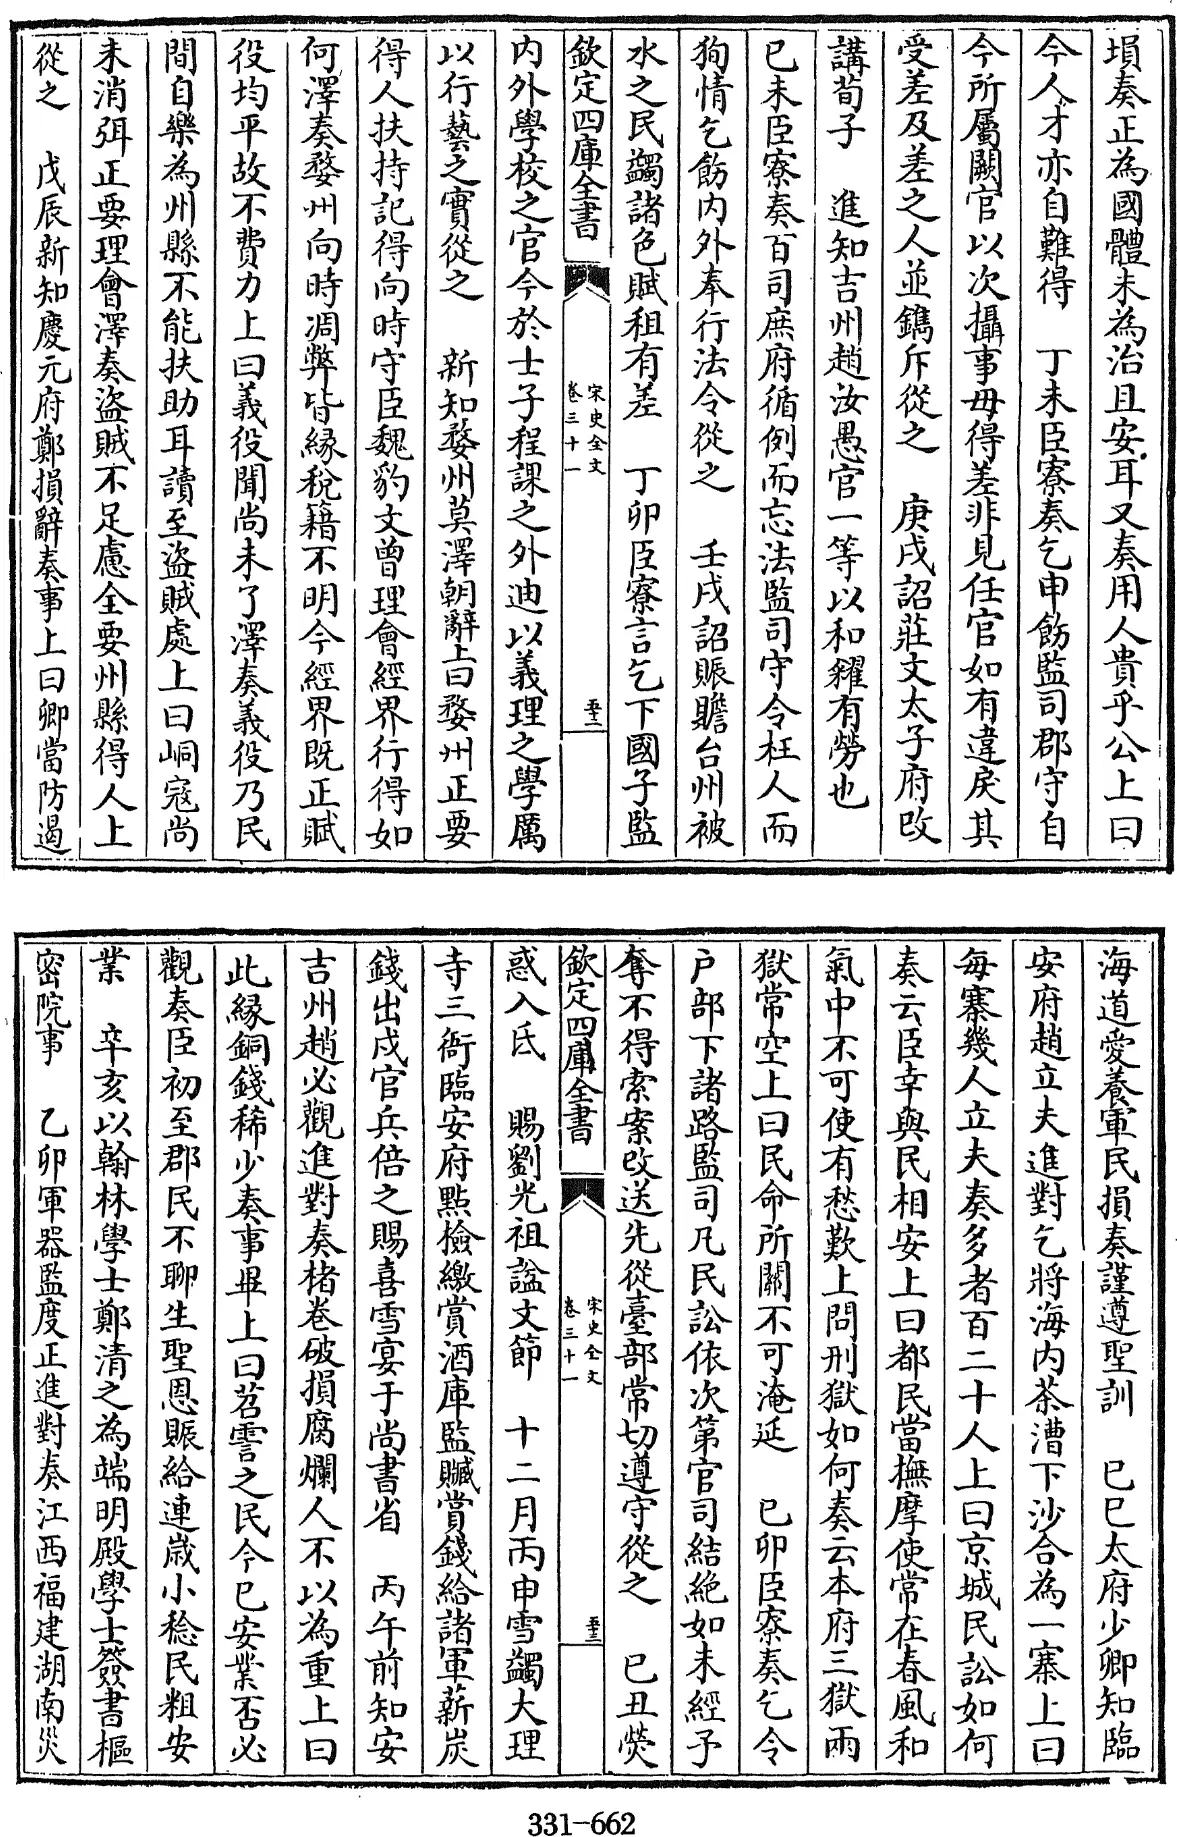 塤奏正為國體未為治且安耳又奏用人貴乎公上曰
今人才亦自難得　丁未臣寮奏乞申飭監司郡守自
今所屬闕官以次攝事毋得差非見任官如有違戾其
受差及差之人並鐫斥從之　庚戌詔莊文太子府改
講荀子　進知吉州趙汝愚官一等以和糴有勞也
已未臣寮奏百司庶府循例而忘法監司守令枉人而
狥情乞飭内外奉行法令從之　壬戌詔賑贍台州被
水之民蠲諸色賦租有差　丁卯臣寮言乞下國子監
欽定四庫全書
宋史全文
卷三十一
五十三
内外學校之官今於士子程課之外迪以義理之學厲
以行藝之實從之　新知婺州莫澤朝辭上曰婺州正要
得人扶持記得向時守臣魏豹文曾理會經界行得如
何澤奏婺州向時凋弊皆緣稅籍不明今經界既正賦
役均平故不費力上曰義役聞尚未了澤奏義役乃民
間自樂為州縣不能扶助耳讀至盜賊處上曰峒寇尚
未消弭正要理會澤奏盜賊不足慮全要州縣得人上
從之　戊辰新知慶元府鄭損辭奏事上曰卿當防遏
海道愛養軍民損奏謹遵聖訓　已巳太府少卿知臨
安府趙立夫進對乞將海内茶漕下沙合為一寨上曰
每寨幾人立夫奏多者百二十人上曰京城民訟如何
奏云臣幸與民相安上曰都民當撫摩使常在春風和
氣中不可使有愁歎上問刑獄如何奏云本府三獄兩
獄常空上曰民命所關不可淹延　已卯臣寮奏乞令
户部下諸路監司凡民訟依次第官司結絶如未經予
奪不得索案改送先從臺部常切遵守從之　已丑熒
欽定四庫全書
宋史全文
卷三十一
五十三
惑入氐　賜劉光祖諡文節　十二月丙申雪蠲大理
寺三衙臨安府點檢繳賞酒庫監贓賞錢給諸軍薪炭
錢出戍官兵倍之賜喜雪宴于尚書省　丙午前知安
吉州趙必觀進對奏楮卷破損腐爛人不以為重上曰
此緣銅錢稀少奏事畢上曰苕霅之民今已安業否必
觀奏臣初至郡民不聊生聖恩賑給連歲小稔民粗安
業　辛亥以翰林學士鄭清之為端明殿學士簽書樞
密院事　乙卯軍器監度正進對奏江西福建湖南災
331-662